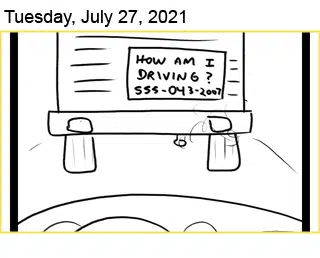 Tuesday, July 27, 2021
HOW AM I
DRIVING?
555-043-2007